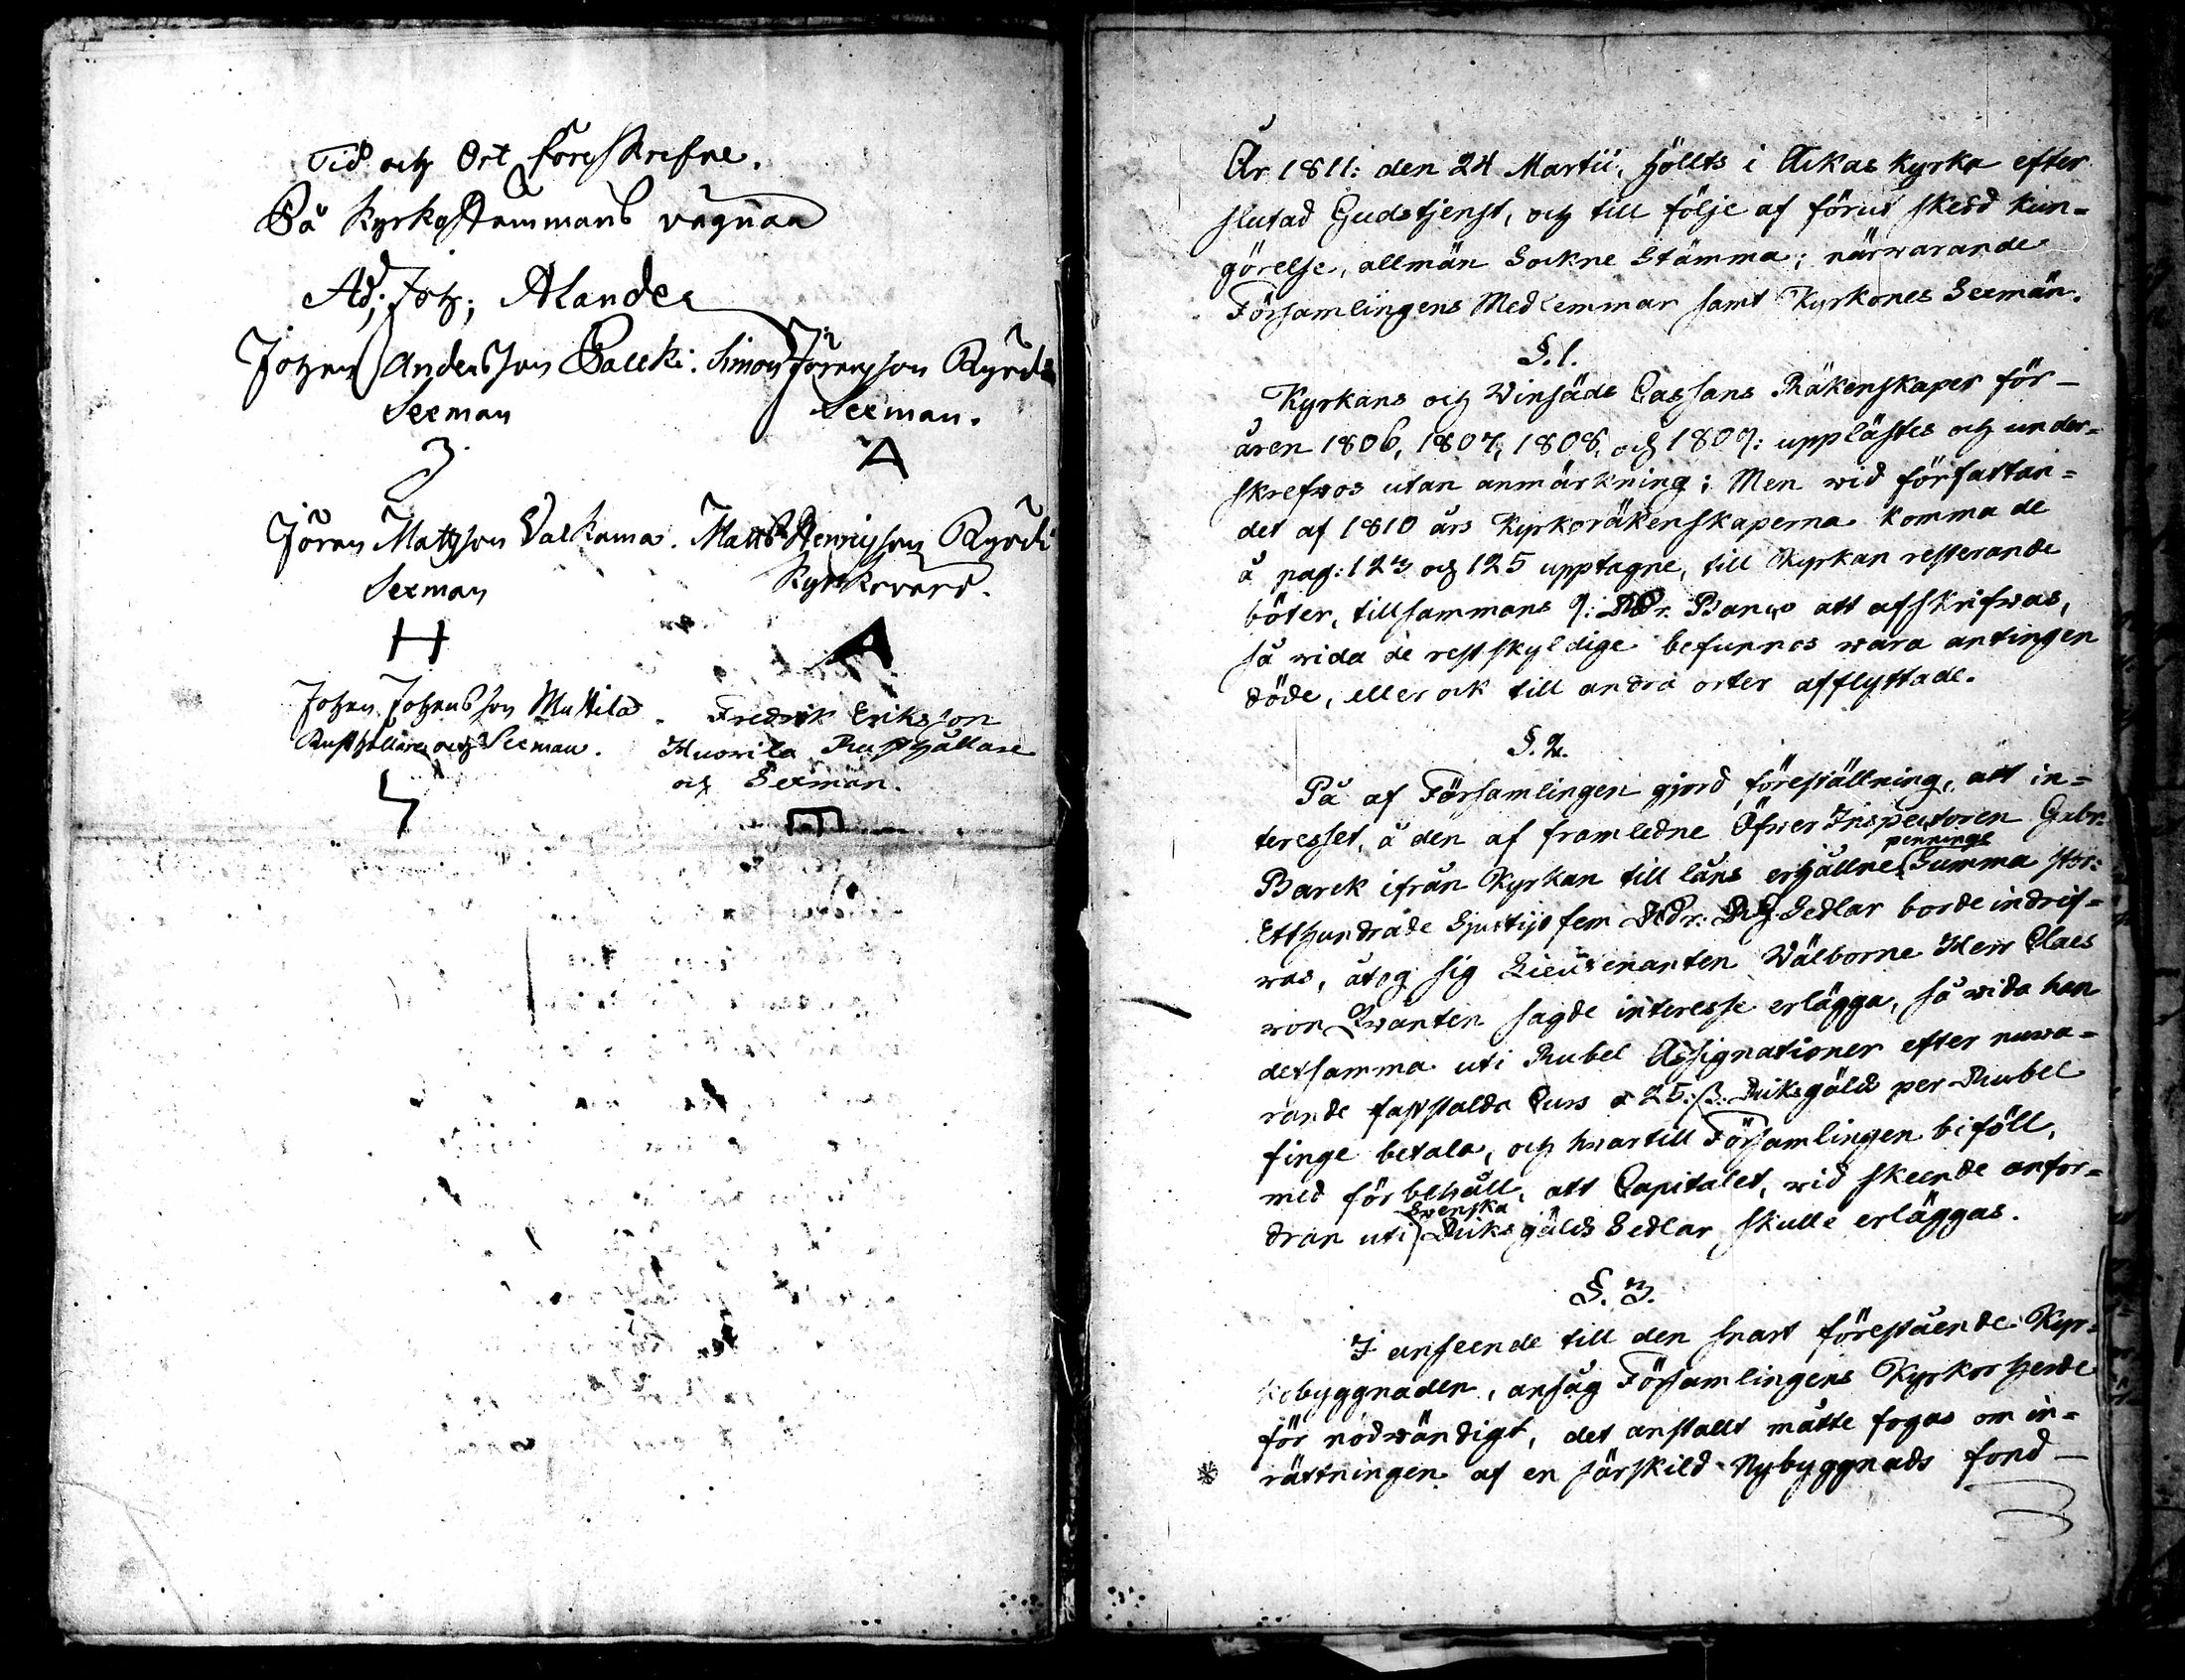 Tid och Ort föreskrefne.
På Kyrkostämmans vägnar
Ad: Joh: Alander
Johan Andersson Palcki. Simon Jöransson Kyrdi
Sexman Sexman.
Jöran Mattsson Valkama. Matts Henricsson Kyrdi
Sexman Kyrkovärd.
H A
Johan Johansson Mattila. Fredrik Eriksson
Rusthållare och Sexman. Huovila Rusthållare
och Sexman.
År 1811: den 24 Martii, höllts i Ackas Kyrka efter
slutad Gudstjenst, och till följe af förut skedd kun-
görelse, allmän Sockne Stämma; närwarande
Församlingens Medlemmar samt Kyrkones Sexmän.
§. 1.
Kyrkans och Winsäds Cassans Räkenskaper för
åren 1806, 1807, 1808, och 1809: upplästes och under-
skrefwos utan anmärkning; Men wid författan-
det af 1810 års Kyrkoräkenskaperna komma de
å pag: 123 och 125 upptagne, till Kyrkan resterande
böter, tillsammans 9: RDr. Banco att afskrifwas,
så wida de restskyldige befunnos wara antingen
döde, eller ock till andra orter afflyttade.
§. 2.
På af Församlingen gjord föreställning, att in-
teresset, å den af framledne Öfwer Inspectoren Gabr:
Barck ifrån Kyrkan till låns erhållne pennings Summa stor:
Etthundrade Sjuttijo fem RDr: Rg. Sedlar borde indrif-
was, åtog sig Lieutenanten Wälborne Herr Claes
von Qvanten sagde interesse erlägga, så wida han
detsamma uti Rubel Assignationer efter nuwa-
rande fastställda Curs a 25. ß. Riksgälds per Rubel
finge betala, och hwartill Församlingen biföll,
med förbehåll, att Capitalet, wid skeende anfor-
dran uti Swenska Riksgälds Sedlar, skulle erläggas.
§. 3.
I anseende till den snart förestående Kyr-
kobyggnaden, ansåg Församlingens Kyrkoherde
för nödwändigt, det anstallt måtte fogas om in-
* rättningen af en särskild Nybyggnads fond